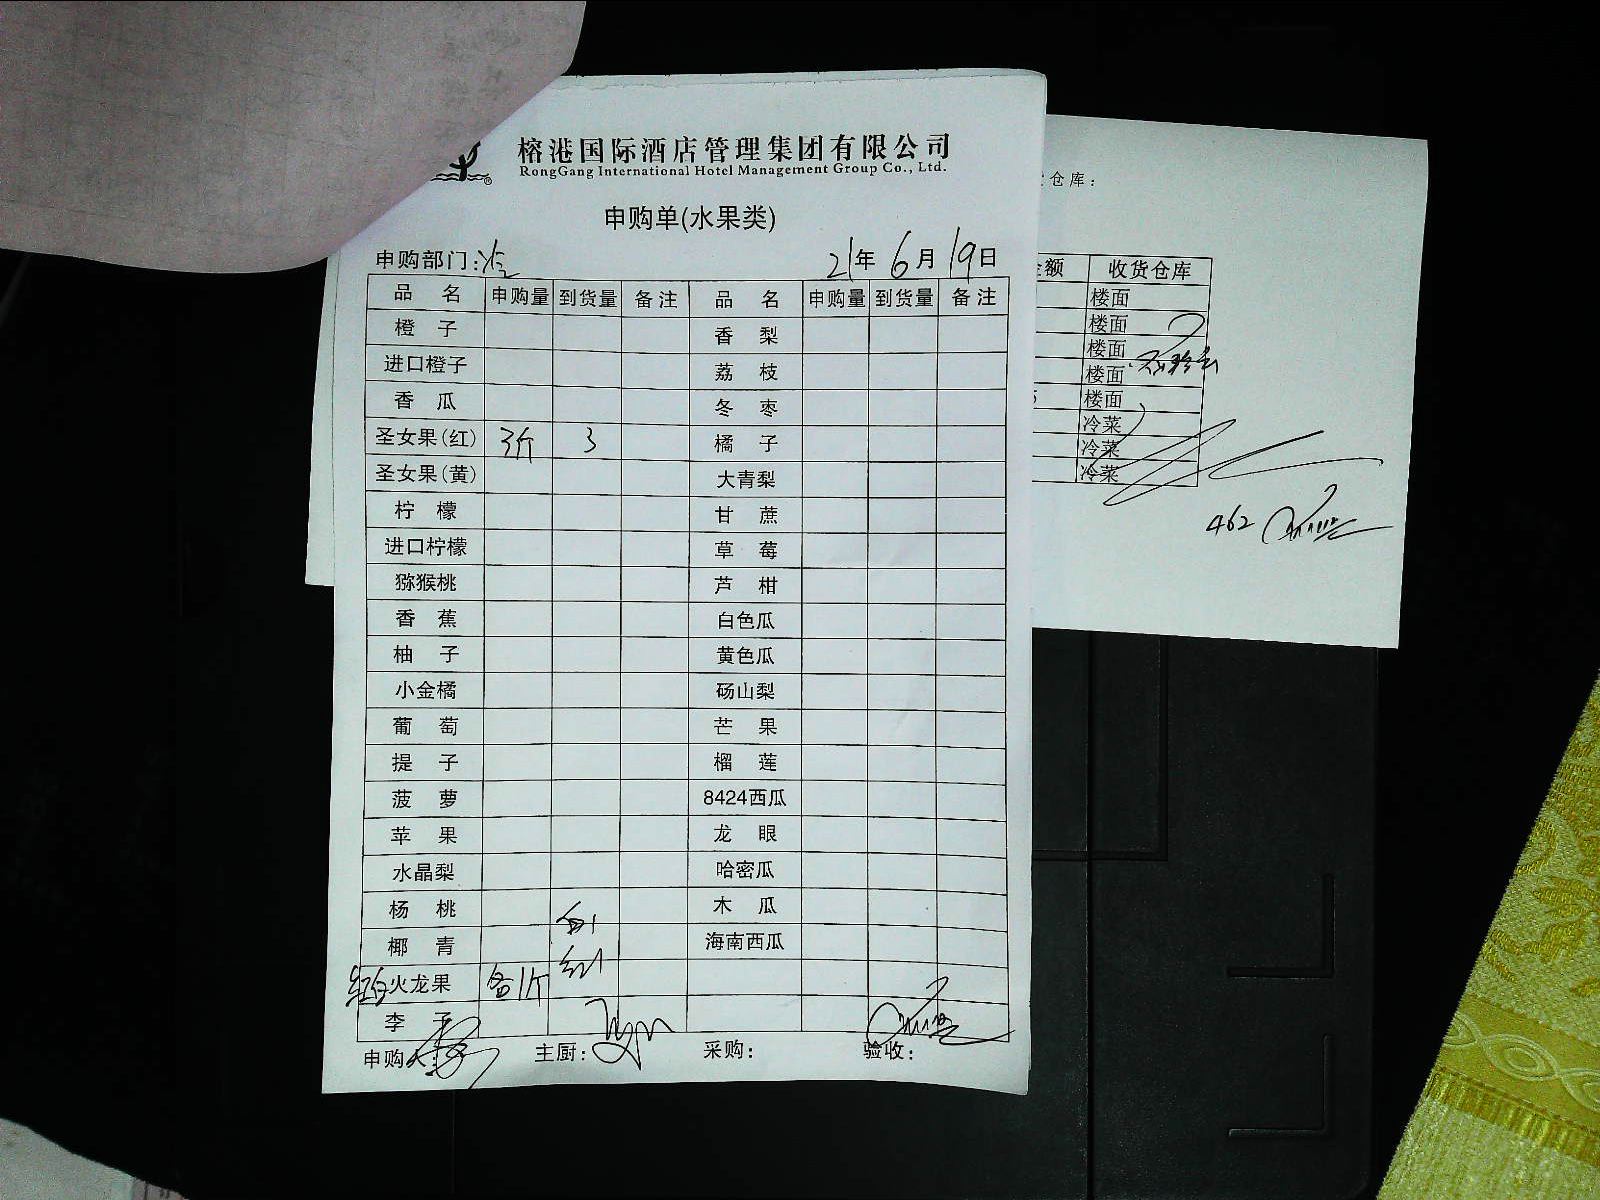 榕港国际酒店管理集团有限公司
RongGang International Hotel Management Group Co., Ltd.
申购单(水果类)
申购部门:冷 21年6月19日
品名 申购量 到货量 备注 品名 申购量 到货量 备注
橙子 香梨
进口橙子 荔枝
香瓜 冬枣
圣女果(红) 3斤 3 橘子
圣女果(黄) 大青梨
柠檬 甘蔗
进口柠檬 草莓
猕猴桃 芦柑
香蕉 白色瓜
柚子 黄色瓜
小金橘 砀山梨
葡萄 芒果
提子 榴莲
菠萝 8424西瓜
苹果 龙眼
水晶梨 哈密瓜
杨桃 白1 木瓜
椰青 红1 海南西瓜
红白火龙果 各1斤
李子
申购人: 主厨: 采购: 验收:
仓库:
金额 收货仓库
楼面
楼面
楼面
楼面
楼面
冷菜
冷菜
冷菜
462